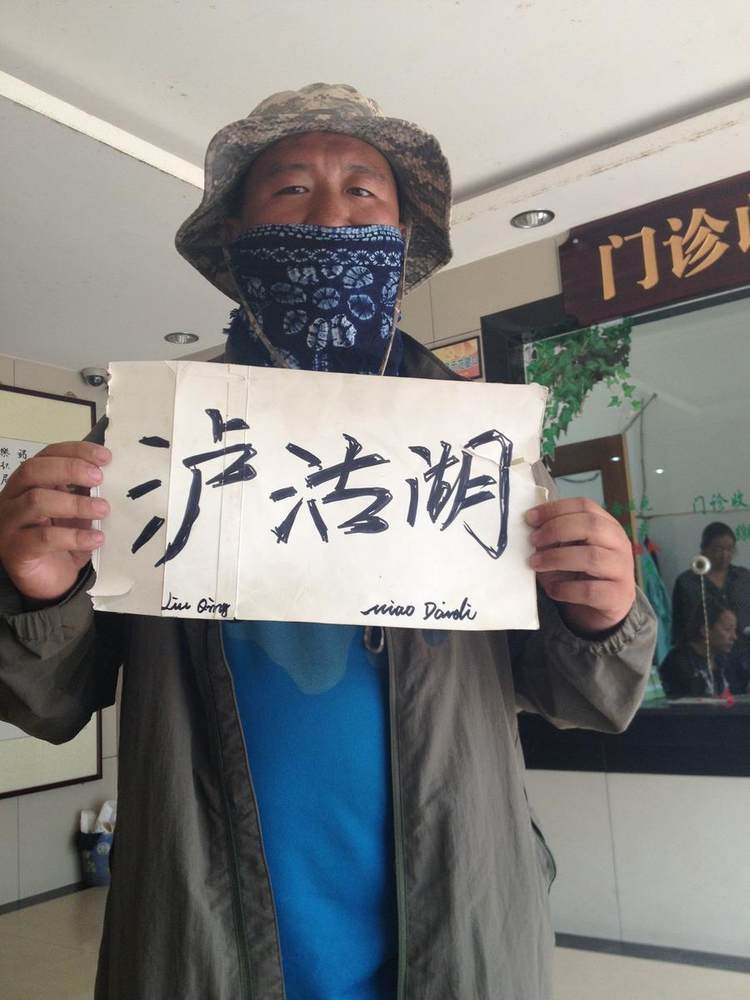 门诊收
门诊收
泸沽湖
Liu Qing
miao Dandi